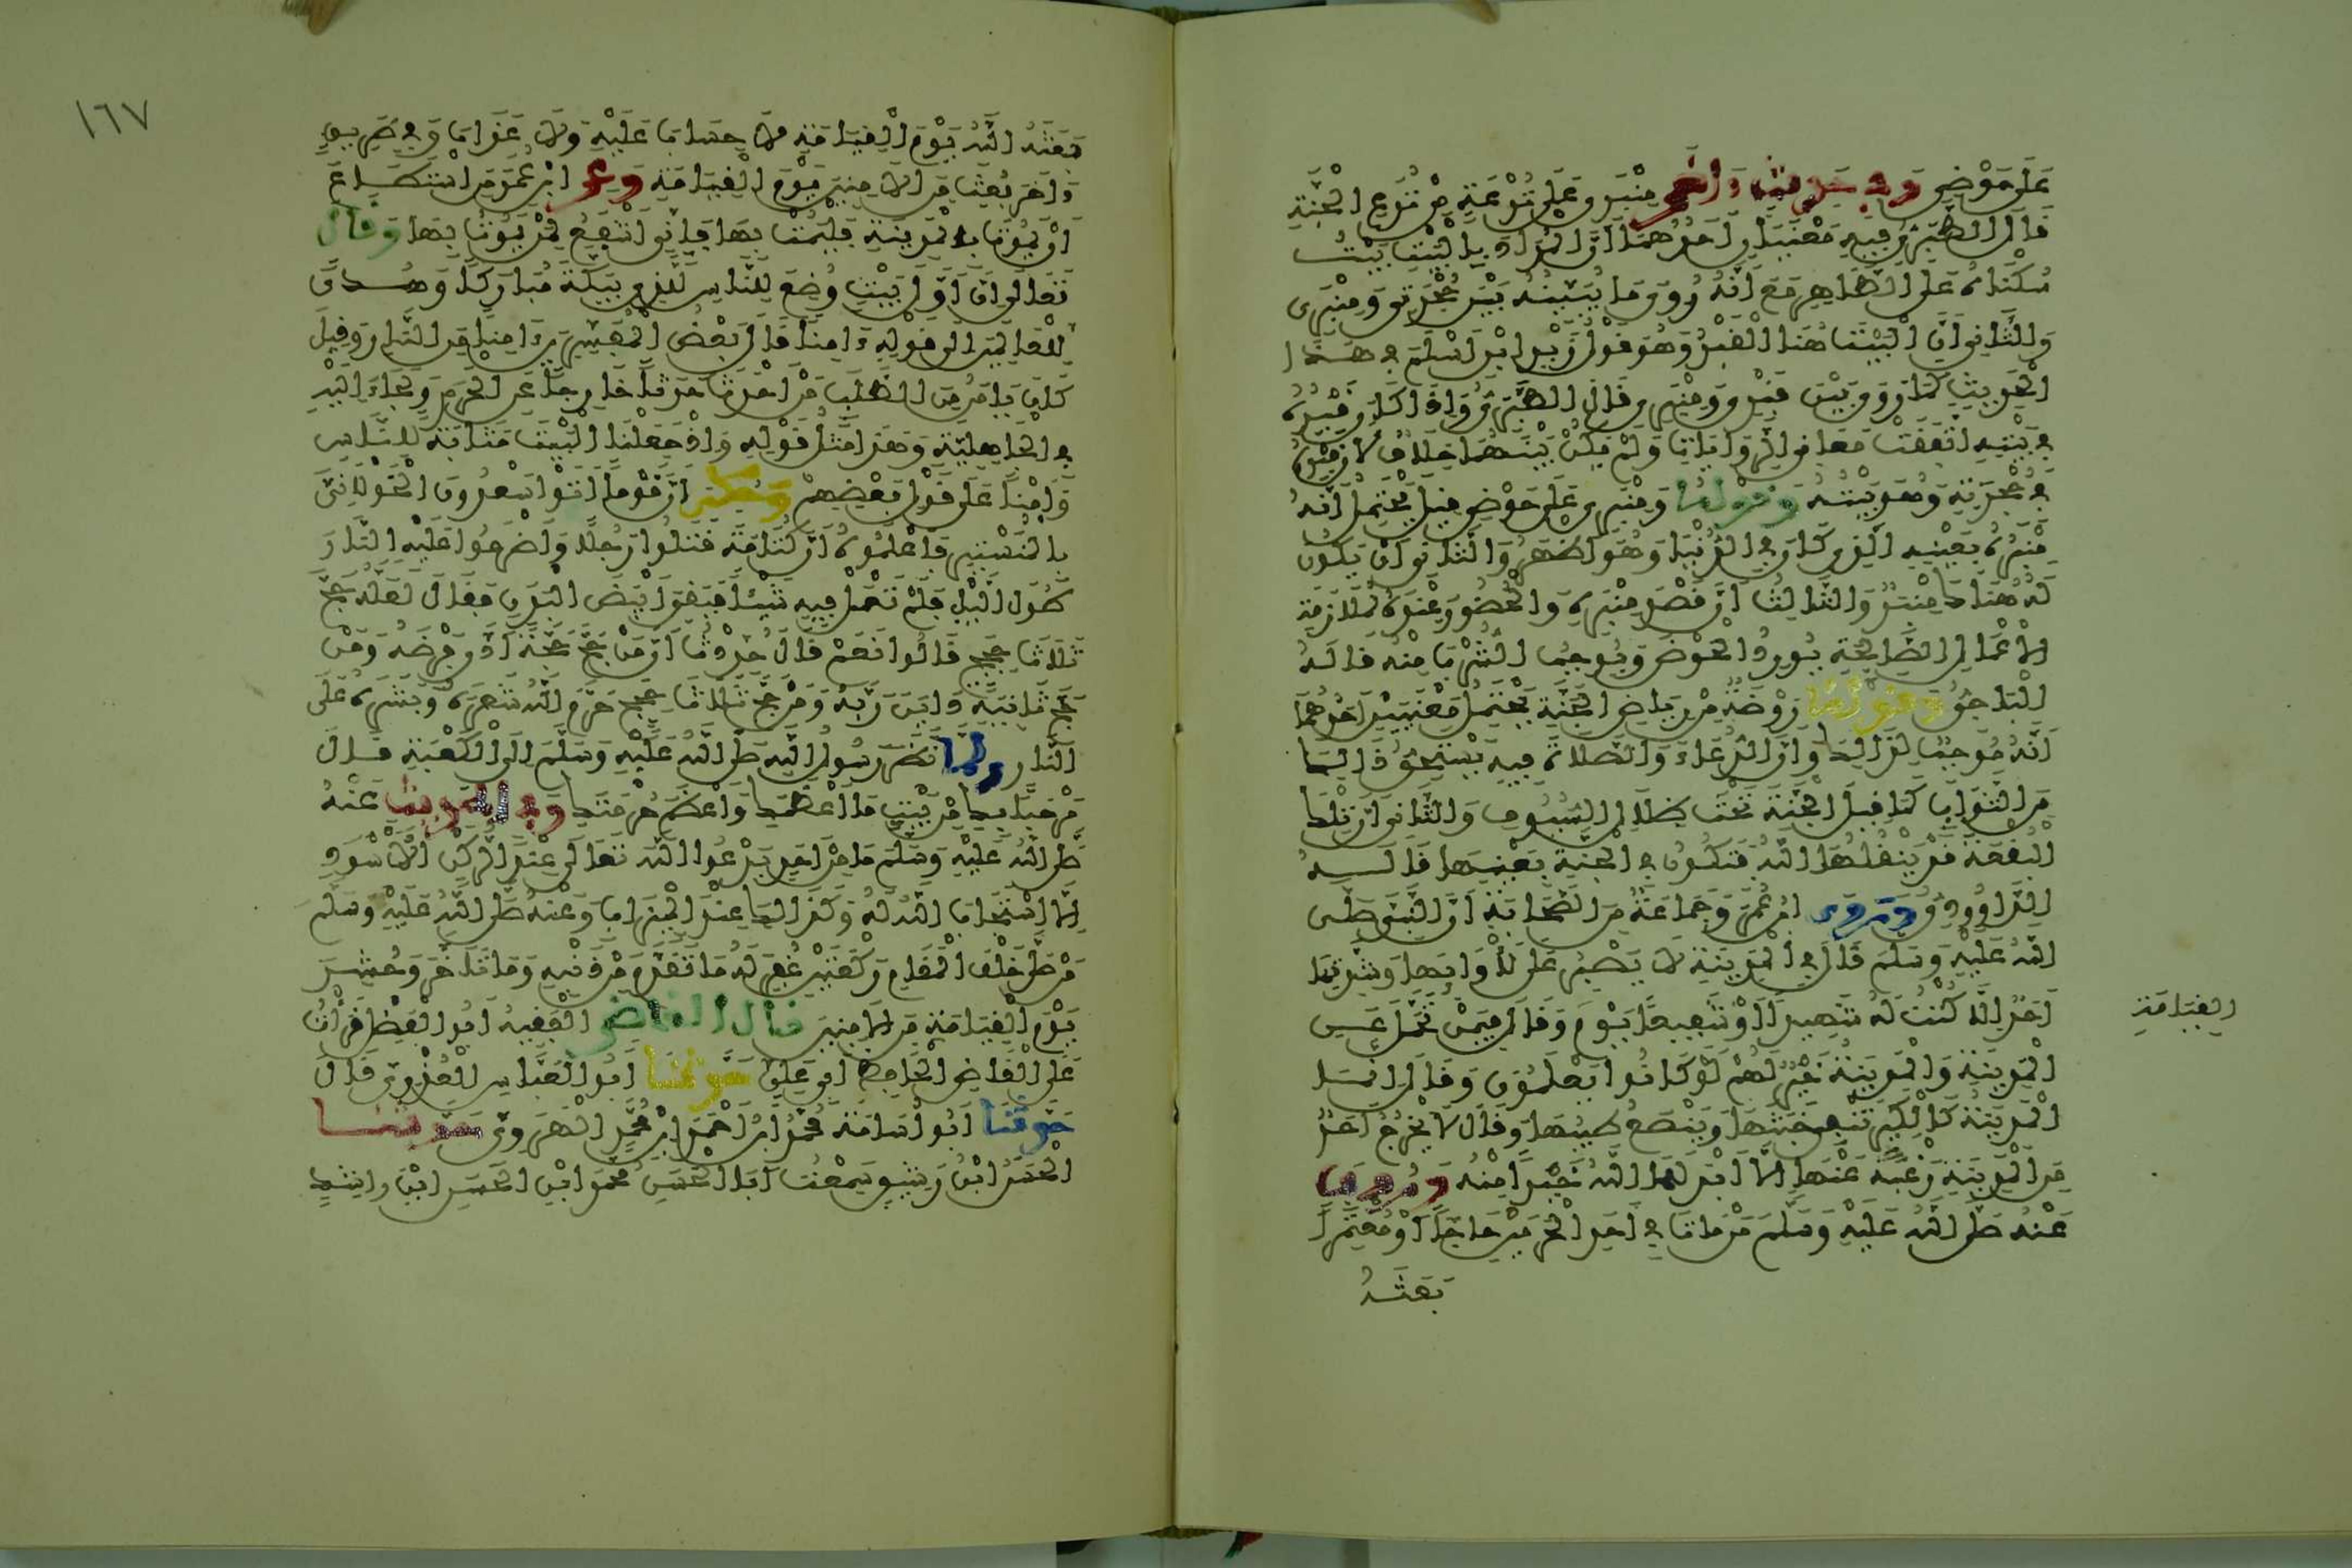 على حوضي وفي حديث ءاخر منبري على ترعة من ترع الجنة
قال الطبري فيه معنيان احدهما ان المراد بالبيت بيت
سكناه على الظاهر مع انه روي ما يبينه بين حجرتي ومنبري
والثاني ان البيت هنا القبر وهو قول زيد ابن اسلم في هذا
الحديث كما روي بين قبري ومنبري قال الطبري واذا كان قبره
في بيته اتفقت معاني الروايات ولم يكن بينهما خلاف لان قبره
في حجرته وهو بيته وقوله ومنبري على حوضي قيل يحتمل انه
منبره بعينه الذي كان في الدنيا وهو اظهر والثاني ان يكون
له هناك منبر والثالث ان قصد منبره والحضور عنده لملازمة
الاعمال الصالحة يورد الحوض ويوجب الشرب منه قاله
الباجي وقوله روضة من رياض الجنة يحتمل معنيين احدهما
انه موجب لذلك وان الدعاء والصلاة فيه يستحق ذلك
من الثواب كما قيل الجنة تحت ظلال السيوف والثاني ان تلك
البقعة قد ينقلها الله فتكون في الجنة بعينها قاله
الداوودي وروى ابن عمر وجماعة من الصحابة ان النبي صلى
الله عليه وسلم قال في المدينة لا يصبر على لأوائها وشدتها
احد الا كنت له شهيدا او شفيعا يوم القيامة وقال فيمن تحمل عن
المدينة والمدينة خير لهم لو كانوا يعلمون وقال انما
المدينة كالكير تنفي خبثها وينصع طيبها وقال لا يخرج احد
من المدينة رغبة عنها الا ابدلها الله خيرا منه وروي
عنه صلى الله عليه وسلم من مات في احد الحرمين حاجا او معتمرا
بعثه
بعثه الله يوم القيامة لا حساب عليه ولا عذاب وفي طريق
ءاخر بعث من الامنين يوم القيامة وعن ابن عمر من استطاع
ان يموت بالمدينة فليمت بها فاني اشفع لمن يموت بها وقال
تعالى ان اول بيت وضع للناس للذي ببكة مباركا وهدى
للعالمين الى قوله ءامنا قال بعض المفسرين ءامنا من النار وقيل
كان يامن من الطلب من احدث حدثا خارجا عن الحرم ولجأ اليه
في الجاهلية وهذا مثل قوله واذ جعلنا البيت مثابة للناس
وامنا على قول بعضهم وحكي ان قوما اتوا سعدون الخولاني
بالمنستير فاعلموه ان كتامة قتلوا رجلا واضرموا عليه النار
طول الليل فلم تعمل فيه شيئا فبقي ابيض البدن فقال لعله حج
ثلاث حجج قالوا نعم قال حدثت ان من حج حجة ادى فرضه ومن
حج ثانية داين ربه ومن حج ثلاث حجج حرم الله شعره وبشره على
النار ولما نظر رسول الله صلى الله عليه وسلم الى الكعبة قال
مرحبا بك من بيت ما اعظمك واعظم حرمتك وفي الحديث عنه
صلى الله عليه وسلم ما من احد يدعوا الله تعالى عند الركن الاسود
الا استجاب الله له وكذلك عند الميزاب وعنه صلى الله عليه وسلم
من صلى خلف المقام ركعتين غفر له ما تقدم من ذنبه وما تاخر وحشر
يوم القيامة من الامنين قال القاضي الفقيه ابو الفضل قرات
على القاضي الحافظ ابي علي حدثنا ابو العباس العذري قال
حدثنا ابو اسامة محمد ابن احمد ابن محمد الهروي حدثنا
الحسن ابن رشيق سمعت ابا الحسن محمد ابن الحسن ابن راشد
القيامة
١٦٧